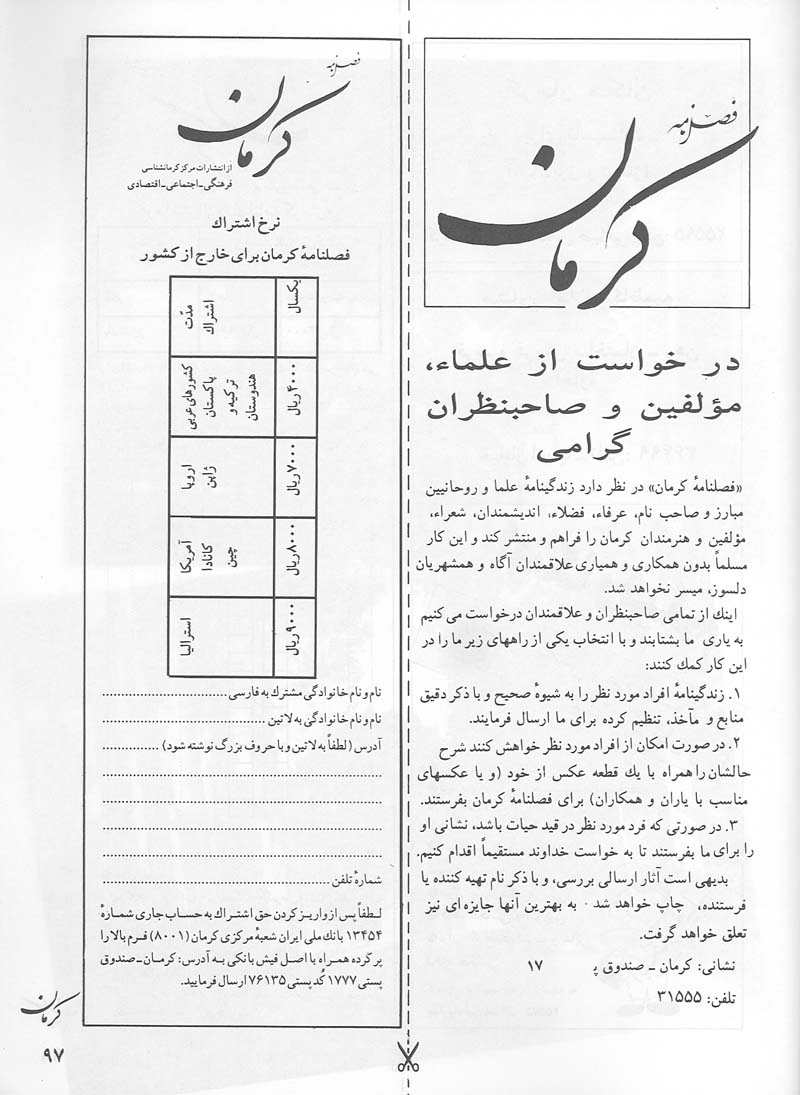 فصلنامه
کرمان
در خواست از علماء،
مؤلفین و صاحبنظران
گرامی
«فصلنامهٔ کرمان» در نظر دارد زندگینامهٔ علما و روحانیین
مبارز و صاحب نام، عرفاء، فضلاء، اندیشمندان، شعراء،
مؤلفین و هنرمندان کرمان را فراهم و منتشر کند و این کار
مسلماً بدون همکاری و همیاری علاقمندان آگاه و همشهریان
دلسوز، میسر نخواهد شد.
اینك از تمامی صاحبنظران و علاقمندان درخواست می‌کنیم
به یاری ما بشتابند و با انتخاب یکی از راههای زیر ما را در
این کار کمك کنند:
۱. زندگینامهٔ افراد مورد نظر را به شیوهٔ صحیح و با ذکر دقیق
منابع و مآخذ، تنظیم کرده برای ما ارسال فرمایند.
۲. در صورت امکان از افراد مورد نظر خواهش کنند شرح
حالشان را همراه با یك قطعه عکس از خود (و یا عکسهای
مناسب با یاران و همکاران) برای فصلنامهٔ کرمان بفرستند.
۳. در صورتی که فرد مورد نظر در قید حیات باشد، نشانی او
را برای ما بفرستند تا به خواست خداوند مستقیماً اقدام کنیم.
بدیهی است آثار ارسالی بررسی، و با ذکر نام تهیه کننده یا
فرستنده، چاپ خواهد شد. به بهترین آنها جایزه ای نیز
تعلق خواهد گرفت.
نشانی: کرمان ـ صندوق پ ۱۷
تلفن: ۳۱۵۵۵
فصلنامه
کرمان
از انتشارات مرکز کرمانشناسی
فرهنگی-اجتماعی-اقتصادی
نرخ اشتراك
فصلنامهٔ کرمان برای خارج از کشور
مدّت اشتراك
یکسال
کشورهای عربی
پاکستان
ترکیه و
هندوستان
۴۰۰۰ ریال
اروپا
ژاپن
۷۰۰۰ ریال
آمریکا
کانادا
چین
۸۰۰۰ ریال
استرالیا
۹۰۰۰ ریال
نام و نام خانوادگی مشترك به فارسی ..............................
نام و نام خانوادگی به لاتین ..............................
آدرس (لطفاً به لاتین و با حروف بزرگ نوشته شود) ..............
شمارهٔ تلفن ..............................
لطفاً پس از واریز کردن حق اشتراك به حساب جاری شمارهٔ
۱۳۴۵۴ بانك ملی ایران شعبهٔ مرکزی کرمان (۸۰۰۱) فرم بالا را
پر کرده همراه با اصل فیش بانکی به آدرس: کرمان-صندوق
پستی ۱۷۷۷ کُد پستی ۷۶۱۳۵ ارسال فرمایید.
کرمان
۹۷